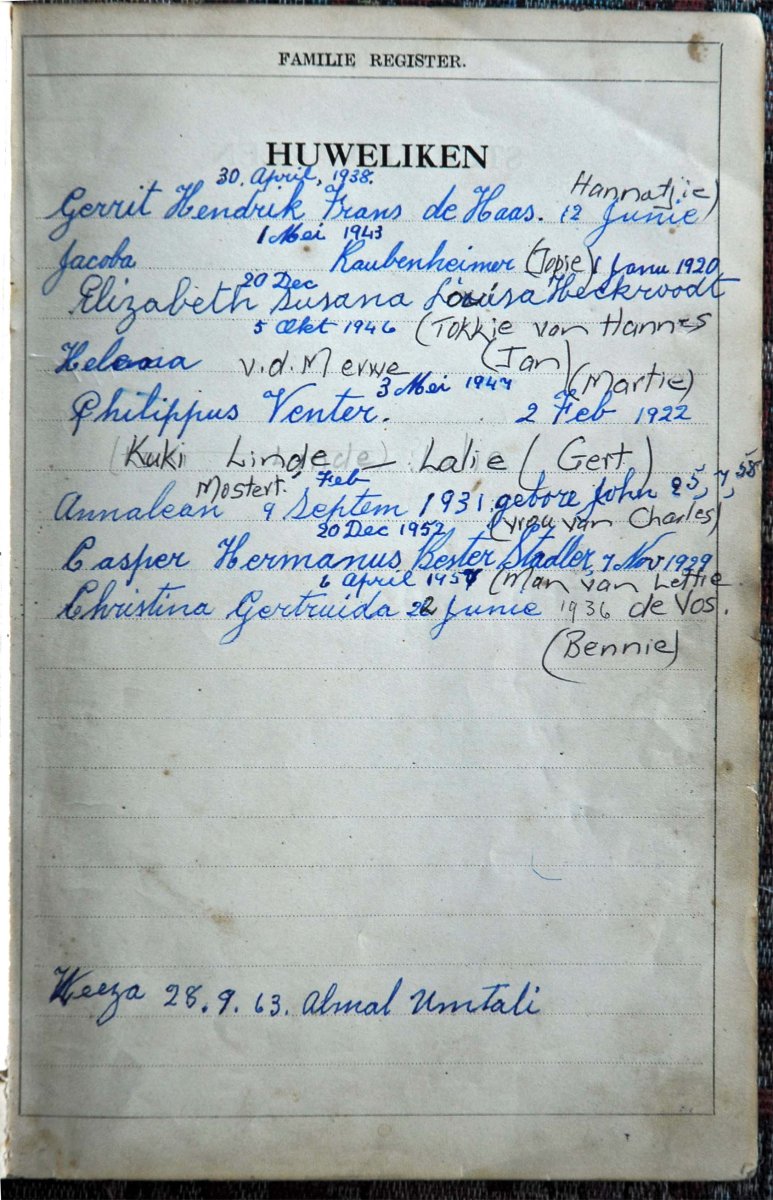 FAMILIE REGISTER.
HUWELIKEN
30. April, 1938. Hannatjie)
Gerrit Hendrik Frans de Haas. 12 Junie
1 Mei 1943
Jacoba Raubenheimer (Jopie) 1 Janu 1920
20 Dec
Elizabeth Susana Louisa Heckroodt
5 Okt 1946 (Tokkie van Hannes
Helena v.d. Merwe (Jan)
3 Mei 1947 (Martie)
Philippus Venter. 2 Feb 1922
(Kuki Linde — Lalie (Gert)
Mostert. Feb
Annalean 9 Septem 1931. gebore John 25, 7, 58
20 Dec 1952 (vrou van Charles)
Casper Hermanus Bester Stadler, 7 Nov 1929
6 April 1957 (Man van Lettie
Christina Gertruida 22 Junie 1936 de Vos.
(Bennie)
28.9.63. Almal Umtali